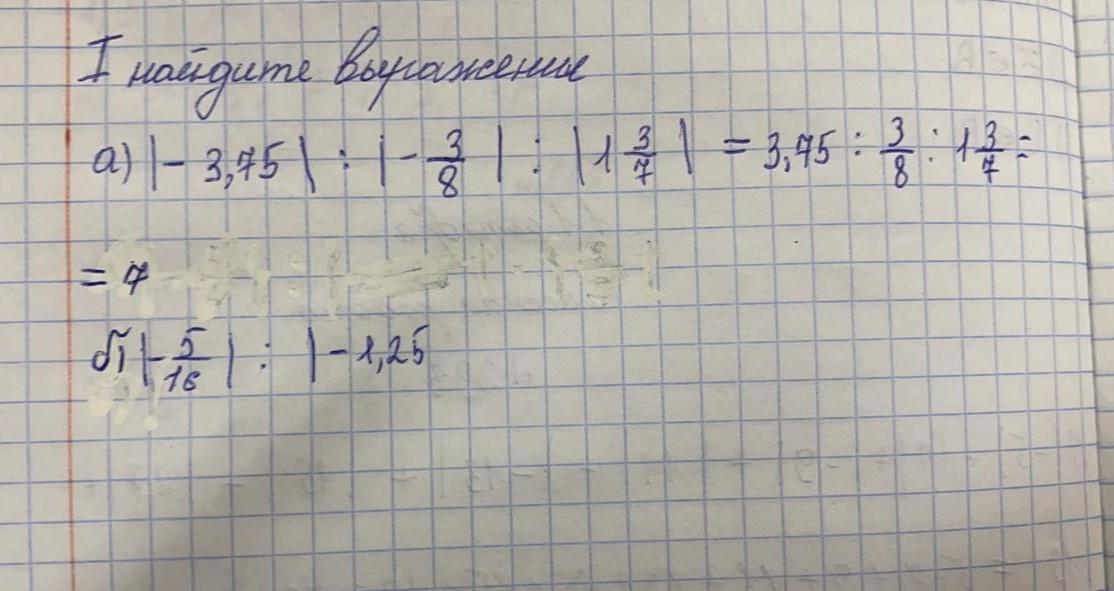 I найдите выражение
а) |- 3,75| : |- 3/8| : |1 3/7| = 3,75 : 3/8 : 1 3/7 =
= 7
б) |- 5/16| : |- 1,25